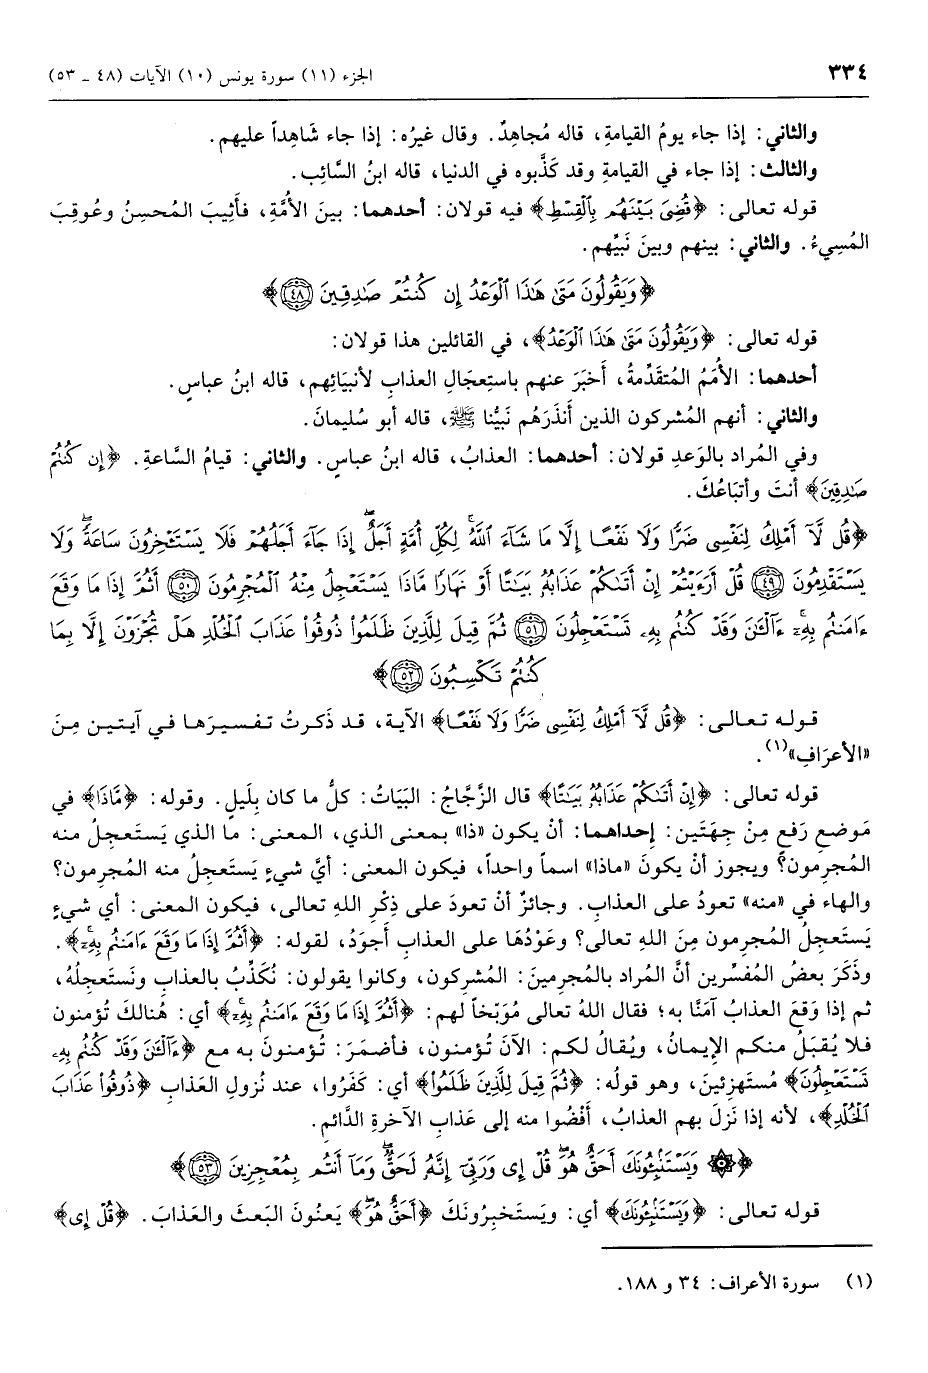 ٣٣٤
الجزء (١١) سورة يونس (١٠) الآيات (٤٨ ـ ٥٣)
والثاني: إذا جاء يومُ القيامةِ، قاله مُجاهِدٌ. وقال غيرُه: إذا جاء شَاهِداً عليهم.
والثالث: إذا جاء في القيامةِ وقد كَذَّبوه في الدنيا، قاله ابنُ السَّائِب.
قوله تعالى: ﴿قُضِىَ بَيْنَهُم بِٱلْقِسْطِ﴾ فيه قولان: أحدهما: بينَ الأُمَّةِ، فأُثِيبَ المُحسِنُ وعُوقِبَ
المُسِيءُ. والثاني: بينهم وبينَ نَبيِّهم.
﴿وَيَقُولُونَ مَتَىٰ هَٰذَا ٱلْوَعْدُ إِن كُنتُمْ صَٰدِقِينَ ٤٨﴾
قوله تعالى: ﴿وَيَقُولُونَ مَتَىٰ هَٰذَا ٱلْوَعْدُ﴾، في القائلين هذا قولان:
أحدهما: الأُمَمُ المُتقَدِّمةُ، أَخبَرَ عنهم باستِعجَالِ العذابِ لأنبيَائِهم، قاله ابنُ عباسٍ.
والثاني: أنهم المُشرِكون الذين أَنذَرَهُم نَبيُّنا ﷺ، قاله أبو سُليمانَ.
وفي المُراد بالوَعدِ قولان: أحدهما: العذابُ، قاله ابنُ عباسٍ. والثاني: قيامُ السَّاعةِ. ﴿إِن كُنتُمْ
صَٰدِقِينَ﴾ أنتَ وأتبَاعُكَ.
﴿قُل لَّآ أَمْلِكُ لِنَفْسِى ضَرًّا وَلَا نَفْعًا إِلَّا مَا شَآءَ ٱللَّهُ ۗ لِكُلِّ أُمَّةٍ أَجَلٌ ۚ إِذَا جَآءَ أَجَلُهُمْ فَلَا يَسْتَـْٔخِرُونَ سَاعَةً ۖ وَلَا
يَسْتَقْدِمُونَ ٤٩ قُلْ أَرَءَيْتُمْ إِنْ أَتَىٰكُمْ عَذَابُهُۥ بَيَٰتًا أَوْ نَهَارًا مَّاذَا يَسْتَعْجِلُ مِنْهُ ٱلْمُجْرِمُونَ ٥٠ أَثُمَّ إِذَا مَا وَقَعَ
ءَامَنتُم بِهِۦٓ ۚ ءَآلْـَٰٔنَ وَقَدْ كُنتُم بِهِۦ تَسْتَعْجِلُونَ ٥١ ثُمَّ قِيلَ لِلَّذِينَ ظَلَمُوا۟ ذُوقُوا۟ عَذَابَ ٱلْخُلْدِ هَلْ تُجْزَوْنَ إِلَّا بِمَا
كُنتُمْ تَكْسِبُونَ ٥٢﴾
قوله تعالى: ﴿قُل لَّآ أَمْلِكُ لِنَفْسِى ضَرًّا وَلَا نَفْعًا﴾ الآية، قد ذَكرتُ تفسيرَها في آيتين مِنَ
«الأعرَافِ»(١).
قوله تعالى: ﴿إِنْ أَتَىٰكُمْ عَذَابُهُۥ بَيَٰتًا﴾ قال الزَّجَّاجُ: البَيَاتُ: كلُّ ما كان بِلَيلٍ. وقوله: ﴿مَّاذَا﴾ في
مَوضعِ رَفعٍ مِنْ جِهتَين: إحداهما: أنْ يكون «ذا» بمعنى الذي، المعنى: ما الذي يَستَعجِلُ منه
المُجرِمون؟ ويجوز أنْ يكونَ «ماذا» اسماً واحداً، فيكون المعنى: أيَّ شيءٍ يَستَعجِلُ منه المُجرِمون؟
والهاء في «منه» تعودُ على العذابِ. وجائزٌ أنْ تعودَ على ذِكْرِ اللهِ تعالى، فيكون المعنى: أي شيءٍ
يَستَعجِلُ المُجرِمون مِنَ اللهِ تعالى؟ وعَوْدُهَا على العذابِ أجوَدُ، لقوله: ﴿أَثُمَّ إِذَا مَا وَقَعَ ءَامَنتُم بِهِۦٓ﴾.
وذَكَرَ بعضُ المُفسِّرين أنَّ المُراد بالمُجرِمينَ: المُشرِكون، وكانوا يقولون: نُكَذِّبُ بالعذابِ ونَستَعجِلُهُ،
ثم إذا وَقَعَ العذابُ آمَنَّا به؛ فقال اللهُ تعالى مُوَبِّخاً لهم: ﴿أَثُمَّ إِذَا مَا وَقَعَ ءَامَنتُم بِهِۦٓ﴾ أي: هُنالكَ تُؤمنون
فلا يُقبَلُ منكم الإيمانُ، ويُقالُ لكم: الآنَ تُؤمنون، فأضمَرَ: تُؤمنونَ به مع ﴿ءَآلْـَٰٔنَ وَقَدْ كُنتُم بِهِۦ
تَسْتَعْجِلُونَ﴾ مُستَهزِئينَ، وهو قولُه: ﴿ثُمَّ قِيلَ لِلَّذِينَ ظَلَمُوا۟﴾ أي: كَفَرُوا، عند نُزولِ العَذابِ ﴿ذُوقُوا۟ عَذَابَ
ٱلْخُلْدِ﴾، لأنه إذا نَزلَ بهم العذابُ، أَفْضُوا منه إلى عَذابِ الآخرةِ الدَّائمِ.
﴿۞ وَيَسْتَنۢبِـُٔونَكَ أَحَقٌّ هُوَ ۖ قُلْ إِى وَرَبِّىٓ إِنَّهُۥ لَحَقٌّ ۖ وَمَآ أَنتُم بِمُعْجِزِينَ ٥٣﴾
قوله تعالى: ﴿وَيَسْتَنۢبِـُٔونَكَ﴾ أي: ويَستَخبِرُونَكَ ﴿أَحَقٌّ هُوَ﴾ يَعنُونَ البَعثَ والعَذابَ. ﴿قُلْ إِى﴾
(١) سورة الأعراف: ٣٤ و ١٨٨.